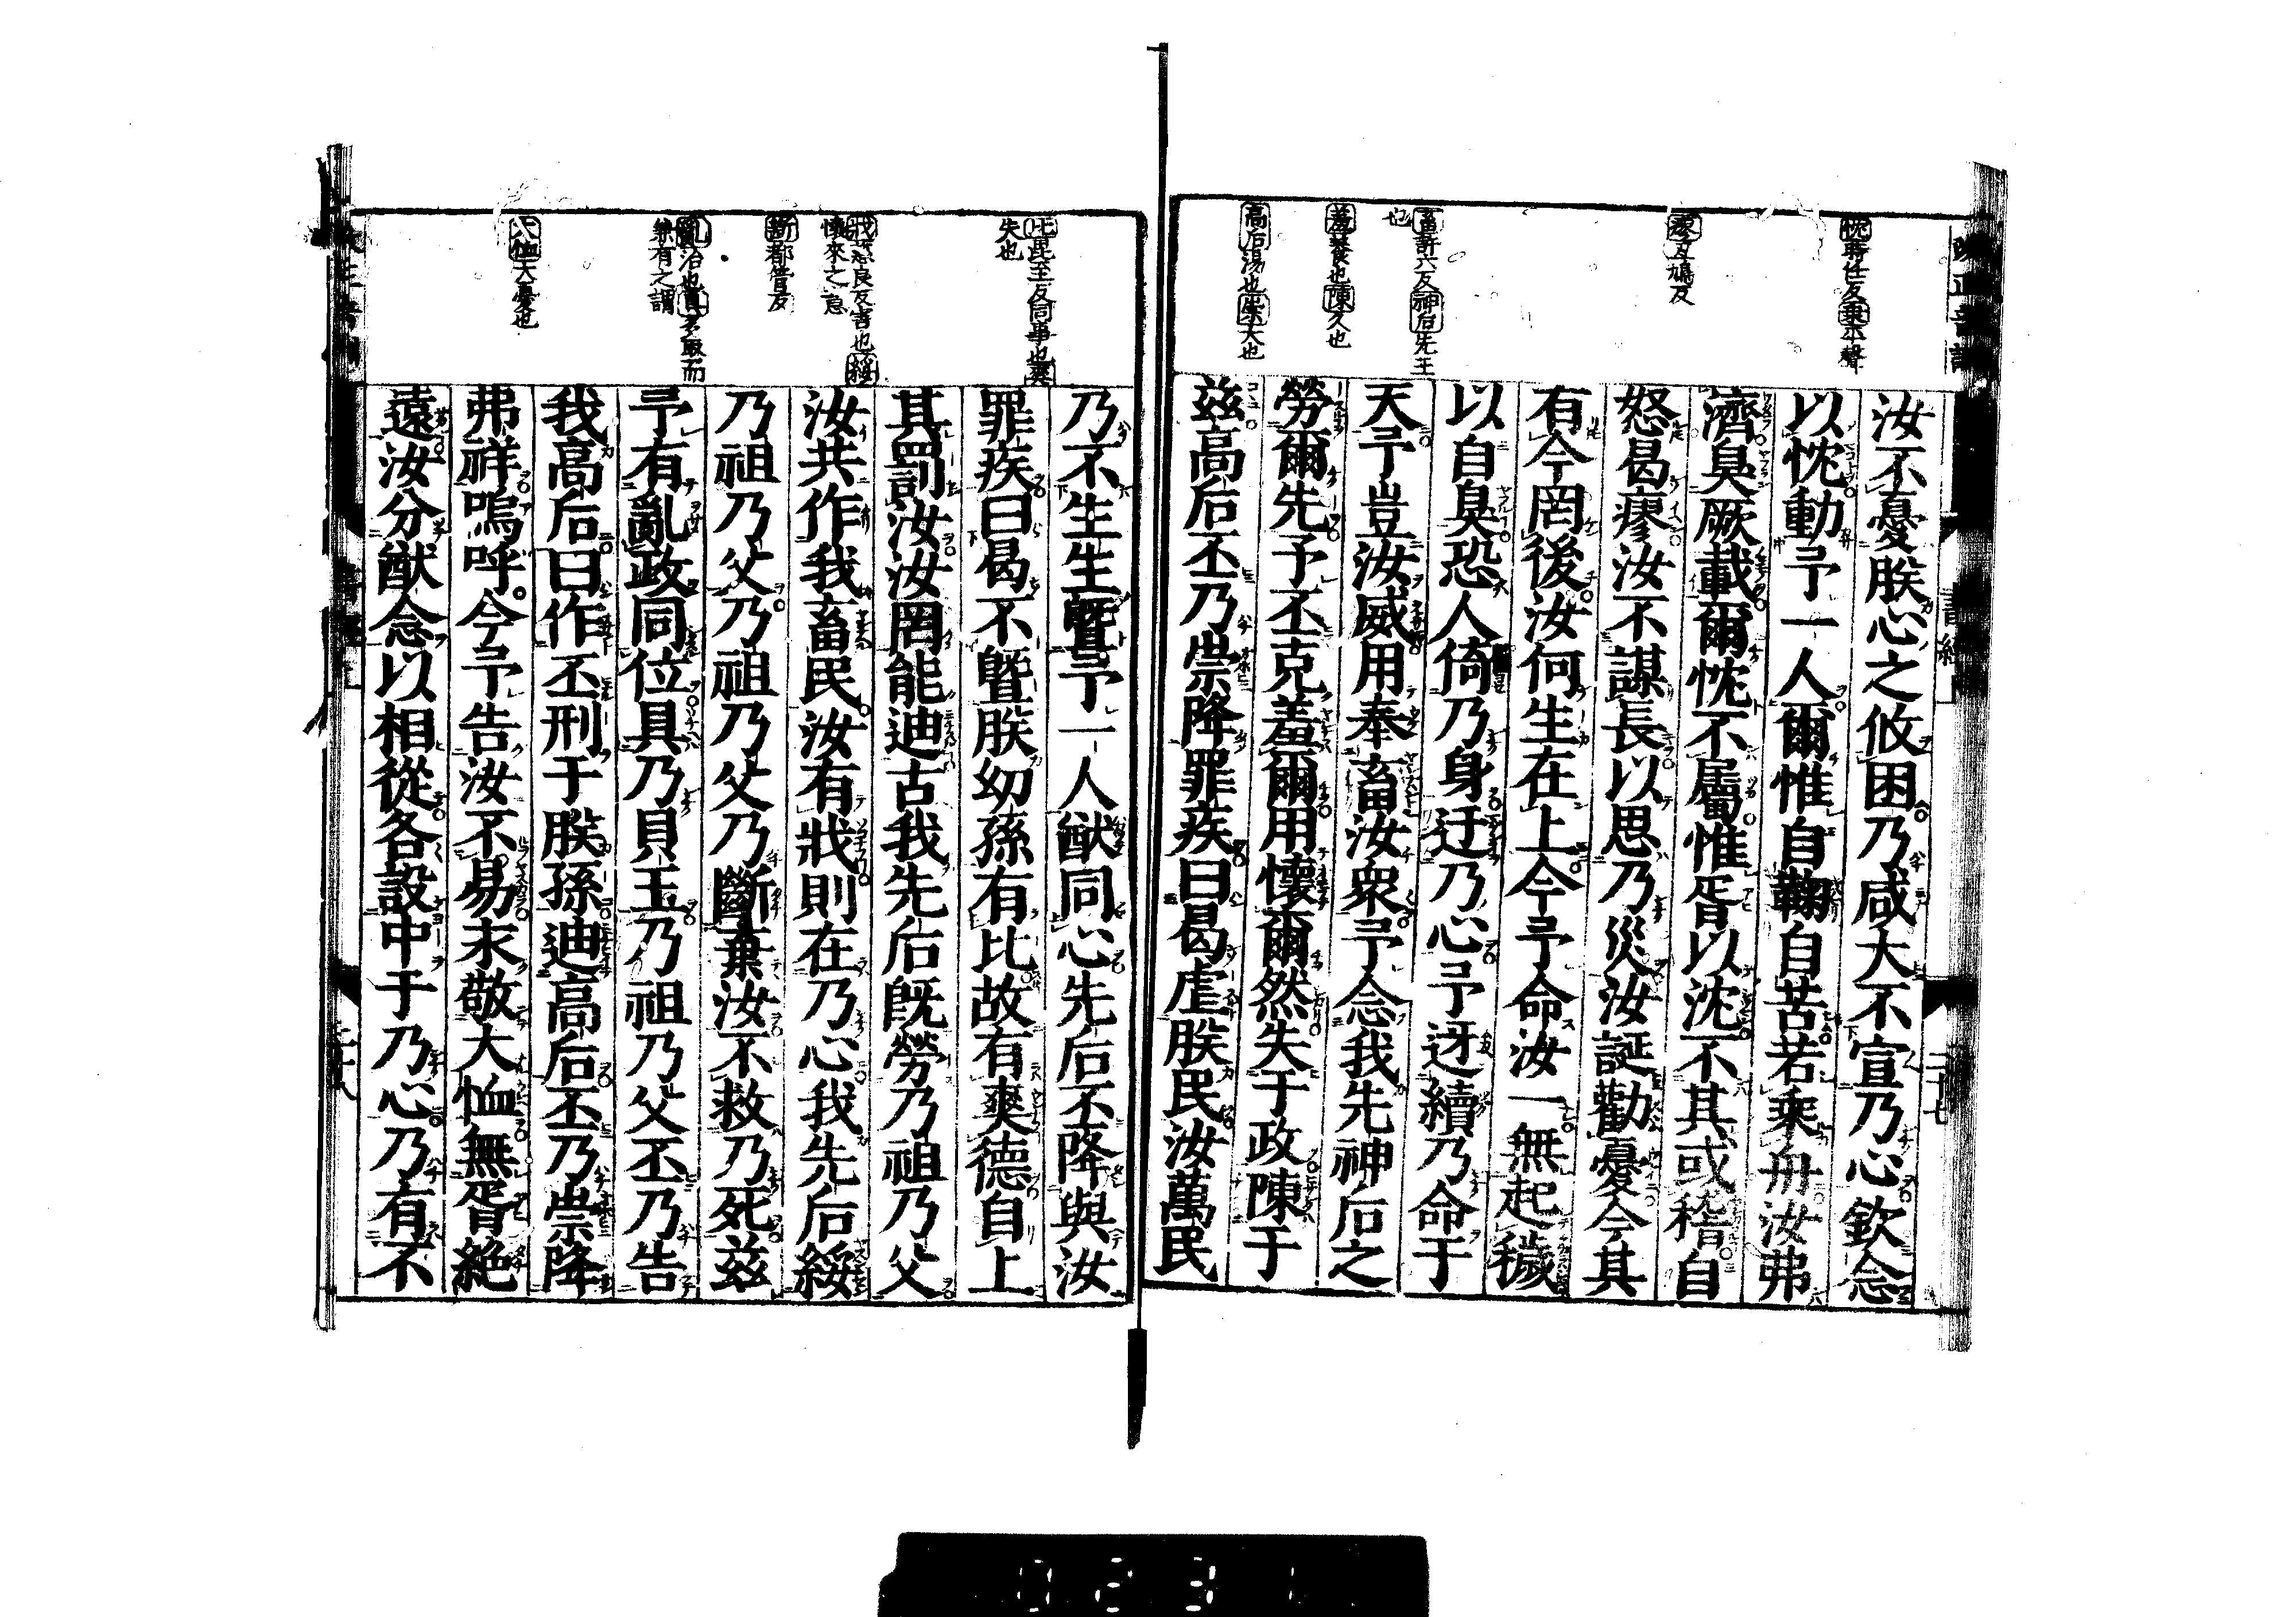 忱蒋任反乗平聲
瘳丑鳩反
畜許六反神后先王
也
羞養也陳久也
高后湯也崇大也
汝不憂朕心之攸困乃咸大不宣乃心欽念
以忱動予一人爾惟自鞠自苦若乗舟汝弗
濟臭厥載爾忱不屬惟胥以沈不其或稽自
怒曷瘳汝不謀長以思乃災汝誕勸憂今其
有今罔後汝何生在上今予命汝一無起穢
以自臭恐人倚乃身迂乃心予迓續乃命于
天予豈汝威用奉畜汝衆予念我先神后之
勞爾先予丕克羞爾用懷爾然失于政陳于
兹高后丕乃崇降罪疾曰曷虐朕民汝萬民
二十七
比毘至反同事也爽
失也
戕慈良反害也綏
懷來之意
斷都管反
亂治也具多取而
兼有之謂
大恤大憂也
乃不生生曁予一人猷同心先后丕降與汝
罪疾曰曷不曁朕幼孫有比故有爽德自上
其罰汝汝罔能迪古我先后既勞乃祖乃父
汝共作我畜民汝有戕則在乃心我先后綏
乃祖乃父乃祖乃父乃斷棄汝不救乃死兹
予有亂政同位具乃貝玉乃祖乃父丕乃告
我高后曰作丕刑于朕孫迪高后丕乃崇降
弗祥嗚呼今予告汝不易永敬大恤無胥絶
遠汝分猷念以相從各設中于乃心乃有不
0231